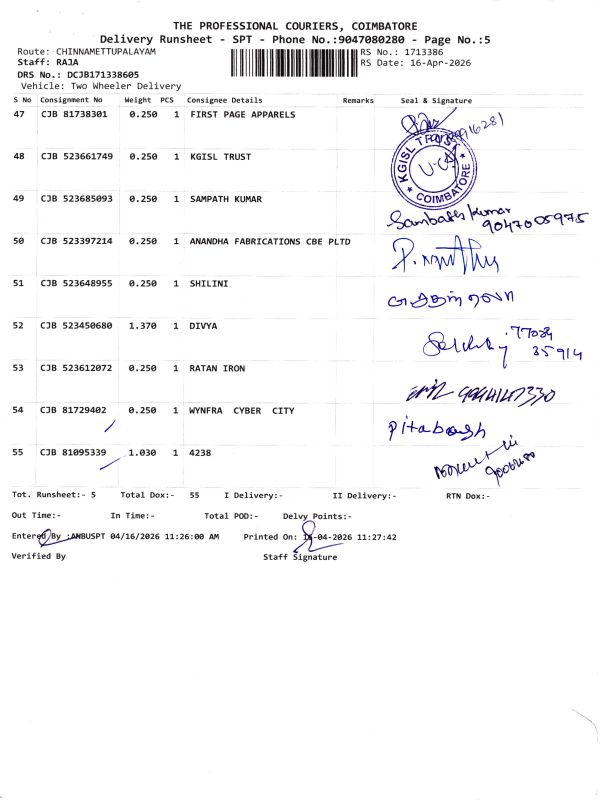 THE PROFESSIONAL COURIERS, COIMBATORE
Delivery Runsheet - SPT - Phone No.:9047080280 - Page No.:5
Route: CHINNAMETTUPALAYAM RS No.: 1713386
Staff: RAJA RS Date: 16-Apr-2026
DRS No.: DCJB171338605
Vehicle: Two Wheeler Delivery
S No Consignment No Weight PCS Consignee Details Remarks Seal & Signature
47 CJB 81738301 0.250 1 FIRST PAGE APPARELS
48 CJB 523661749 0.250 1 KGISL TRUST KGISL TRUST COIMBATORE
49 CJB 523685093 0.250 1 SAMPATH KUMAR Sambath Kumar
9047005975
50 CJB 523397214 0.250 1 ANANDHA FABRICATIONS CBE PLTD
51 CJB 523648955 0.250 1 SHILINI
52 CJB 523450680 1.370 1 DIVYA 77084
35914
53 CJB 523612072 0.250 1 RATAN IRON
54 CJB 81729402 0.250 1 WYNFRA CYBER CITY pitabash
55 CJB 81095339 1.030 1 4238
Tot. Runsheet:- 5 Total Dox:- 55 I Delivery:- II Delivery:- RTN Dox:-
Out Time:- In Time:- Total POD:- Delvy Points:-
Entered By :ANBUSPT 04/16/2026 11:26:00 AM Printed On: 16-04-2026 11:27:42
Verified By Staff Signature